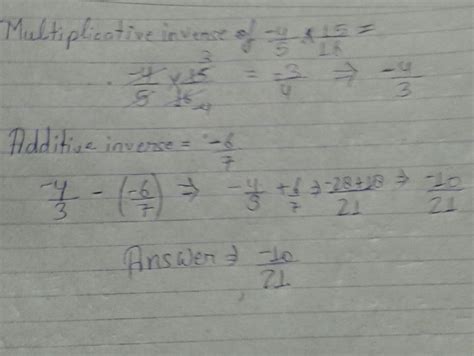 Multiplicative inverse of -4/5 × 15/16 =
-4/5 × 15/16 3 4 = -3/4 ⇒ -4/3
Additive inverse = -6/7
-4/3 - (-6/7) ⇒ -4/3 + 6/7 ⇒ -28+18/21 ⇒ -10/21
Answer ⇒ -10/21